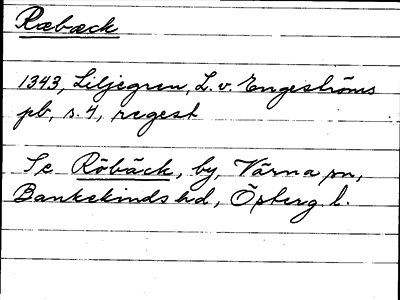 Ræbæck
1343, Liljegren, L. v. Engeströms
pb, s. 4, regest
Se Röbäck, by, Värna sn,
Bankekinds hd, Östergl.